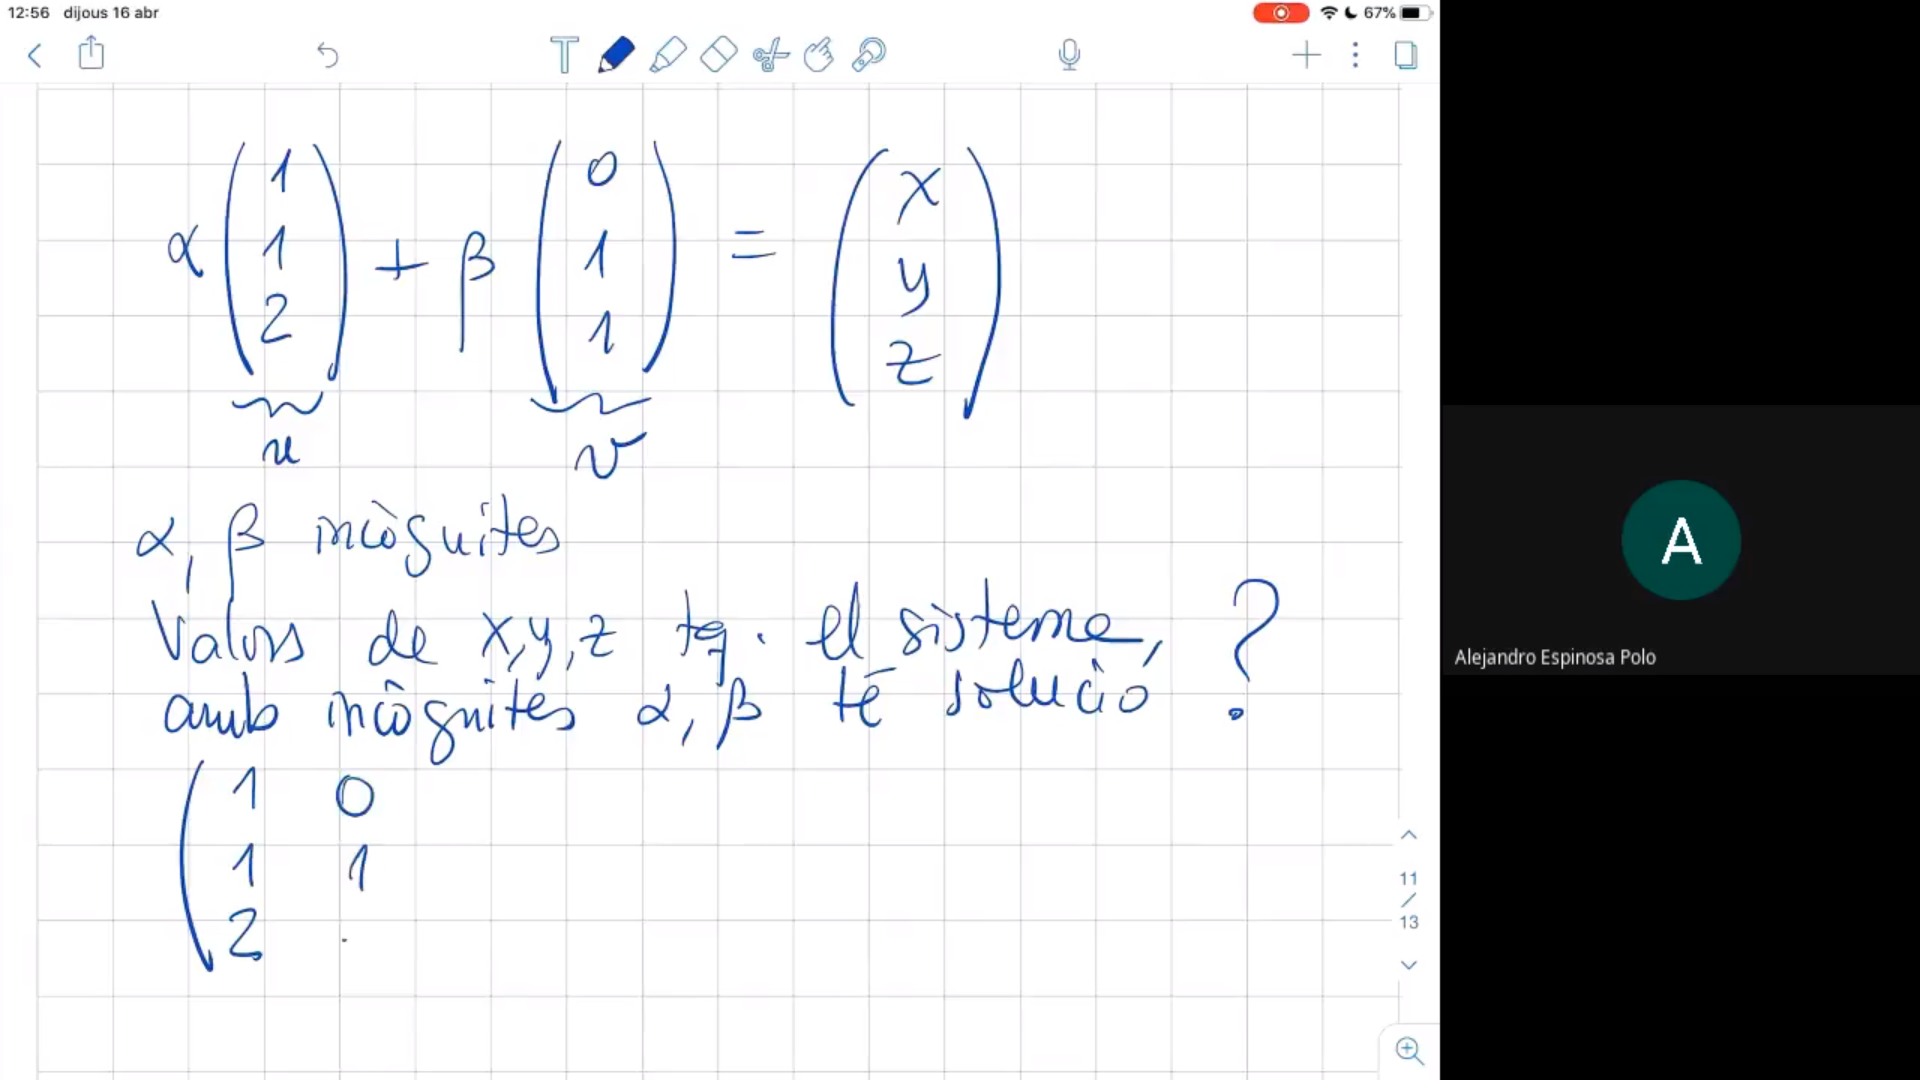 12:56 dijous 16 abr 67%
α ( 1 1 2 ) + β ( 0 1 1 ) = ( x y z )
u v
α, β incògnites
Valors de x, y, z tq. el sistema, ?
amb incògnites α, β té solució
1 0
1 1
2
11
/
13
A
Alejandro Espinosa Polo